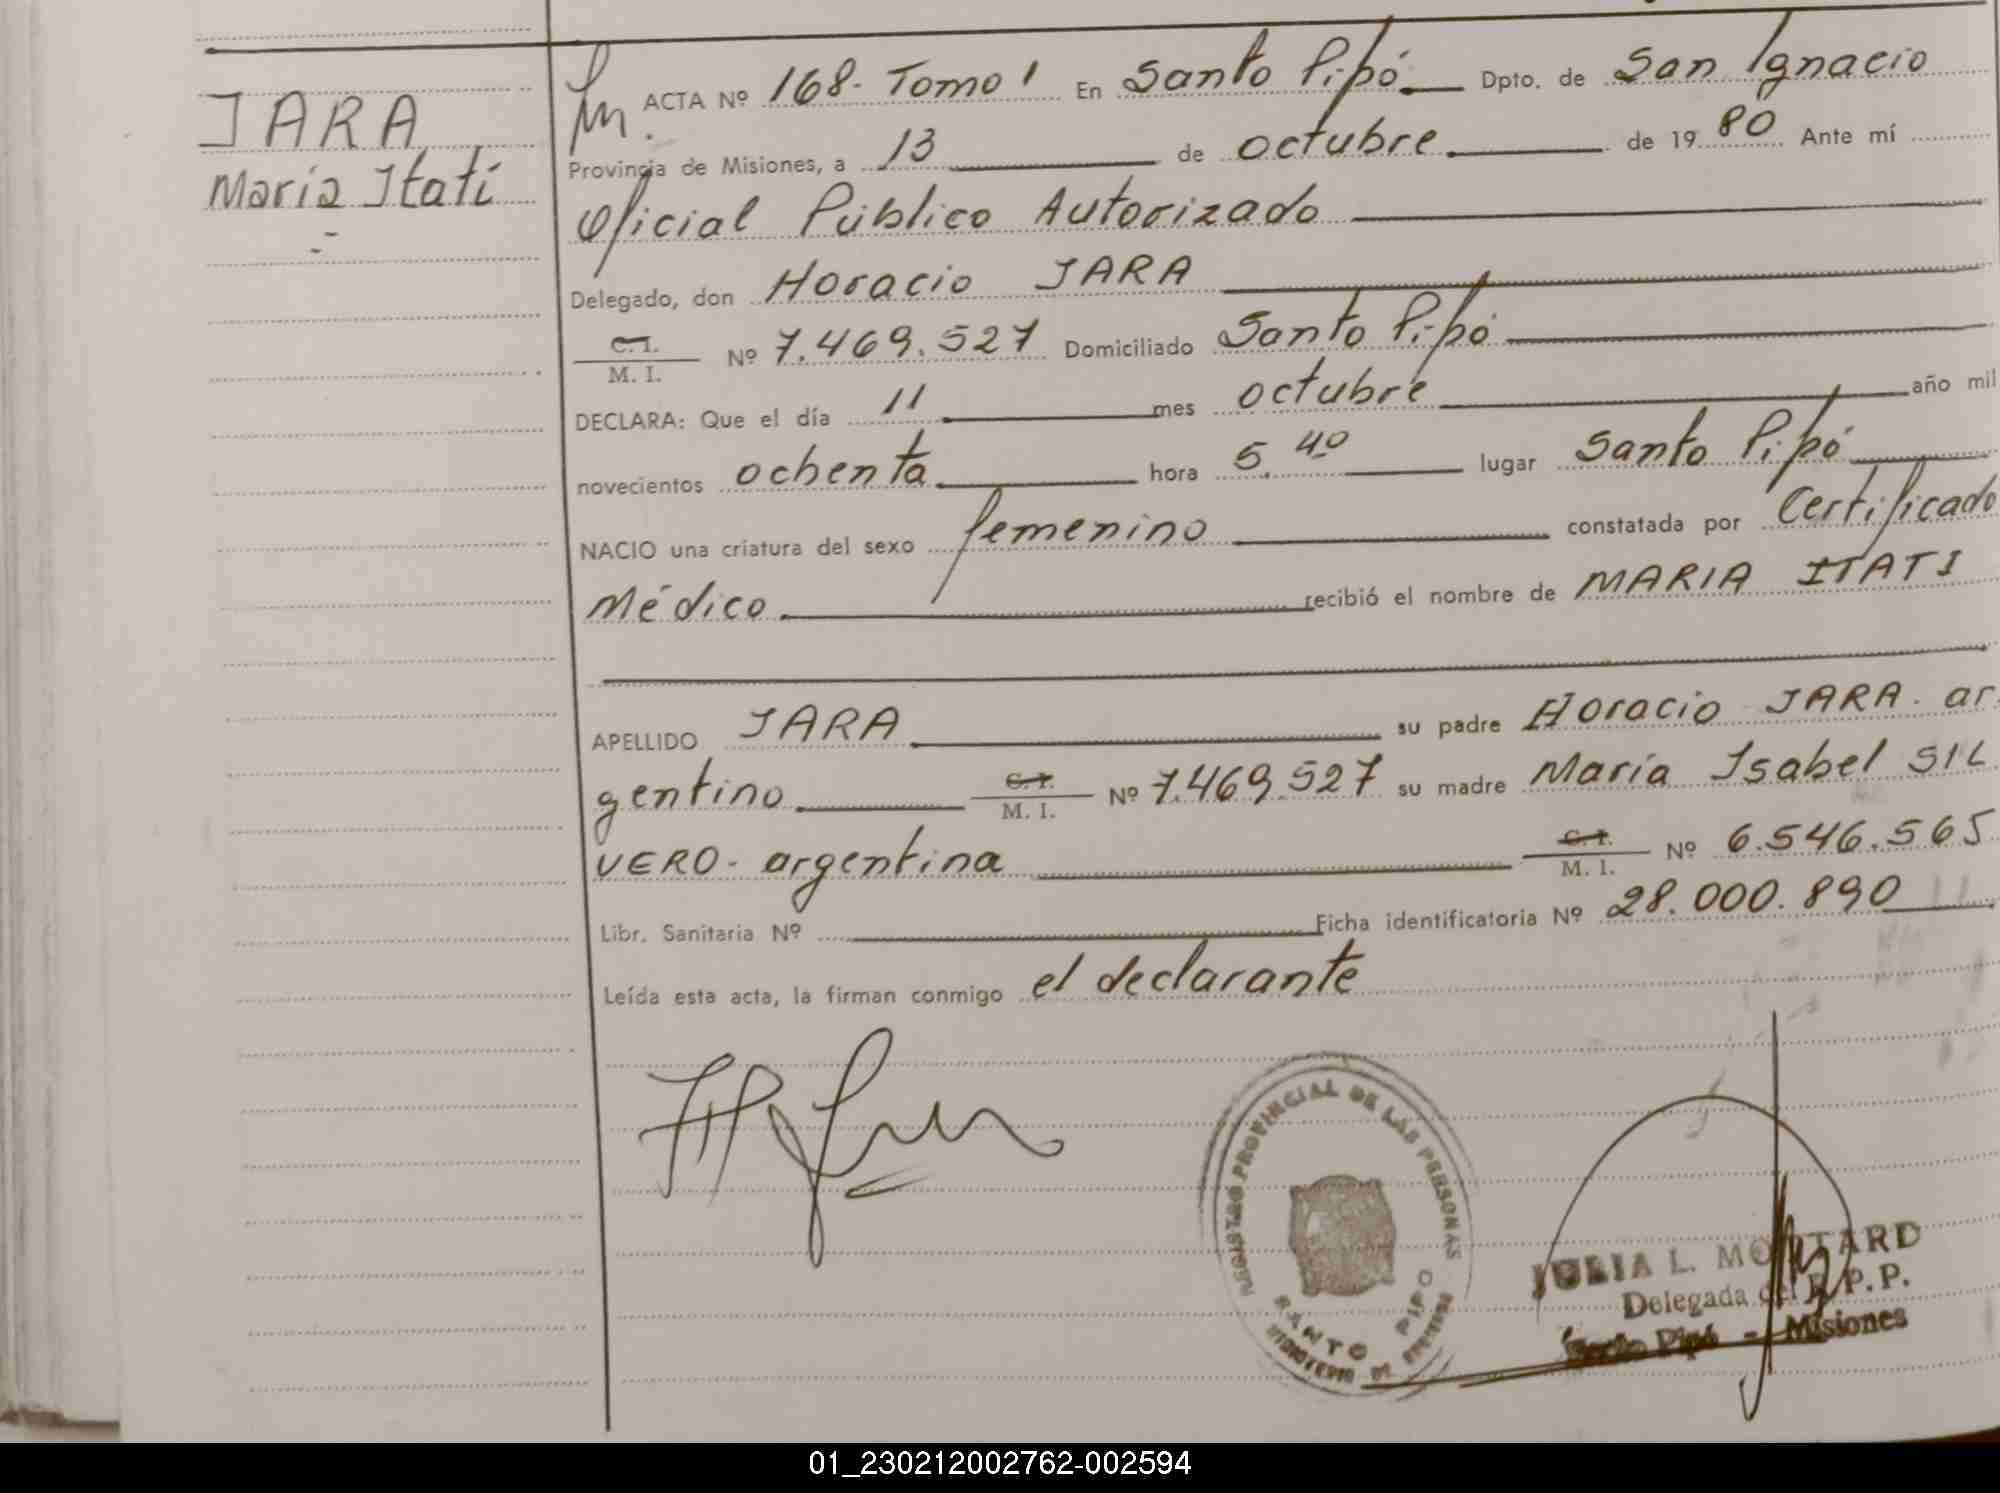 JARA
María Itatí
ACTA Nº 168- Tomo 1 En Santo Pipó Dpto. de San Ignacio
Provincia de Misiones, a 13 de octubre de 1980 Ante mí
Oficial Público Autorizado
Delegado, don Horacio JARA
C. I.
M. I. Nº 7.469.527 Domiciliado Santo Pipó
DECLARA: Que el día 11 mes octubre año mil
novecientos ochenta hora 5.40 lugar Santo Pipó
NACIO una criatura del sexo femenino constatada por Certificado
Médico recibió el nombre de MARIA ITATI
APELLIDO JARA su padre Horacio JARA. ar
gentino C. I.
M. I. Nº 7.469.527 su madre María Isabel SIL
VERO- argentina C. I.
M. I. Nº 6.546.565
Libr. Sanitaria Nº Ficha identificatoria Nº 28.000.890
Leída esta acta, la firman conmigo el declarante
REGISTRO PROVINCIAL DE LAS PERSONAS
SANTO PIPO
JULIA L.
Delegada del R.P.P.
Santo Pipó - Misiones
01_230212002762-002594